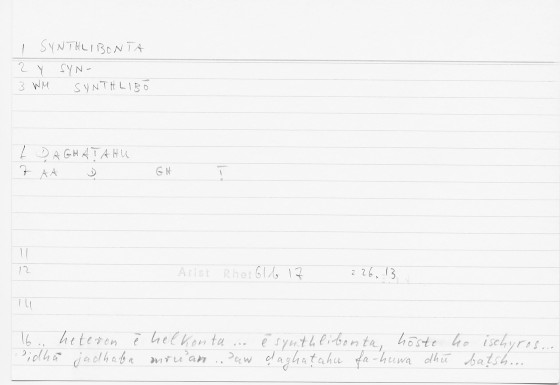 1 SYNTHLIBONTA
2 Y SYN-
3 WM SYNTHLIBŌ
6 ḌAGHAṬAHU
7 AA Ḍ GH Ṭ
11
12 Arist Rhet 61b 17 : 26. 13
14
16 .. heteron ē helkonta ... ē synthlibonta, hōste ho ischyros ...
ʾidhā jadhaba mruʾan .. ʾaw ḍaghaṭahu fa-huwa dhū baṭsh...